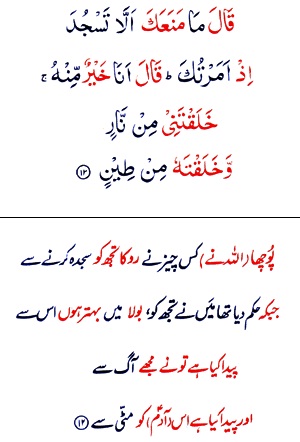 قَالَ مَا مَنَعَكَ اَلَّا تَسْجُدَ
اِذْ اَمَرْتُكَ ؕ قَالَ اَنَا خَيْرٌ مِّنْهُ ۚ
خَلَقْتَنِيْ مِنْ نَّارٍ
وَّخَلَقْتَهٗ مِنْ طِيْنٍ ۝۱۲
پُوچھا (اللہ نے) کس چیز نے روکا تجھ کو سجدہ کرنے سے
جبکہ حکم دیا تھا میں نے تجھ کو؛ بولا میں بہتر ہوں اس سے
پیدا کیا ہے تو نے مجھے آگ سے
اور پیدا کیا ہے اس (آدمؑ) کو مٹّی سے ۝۱۲